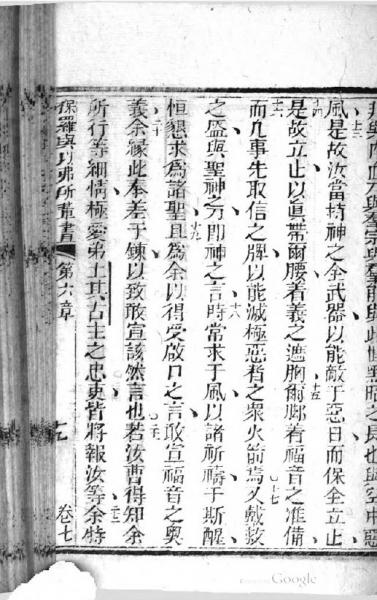 與肉血乃與羣宗與羣能與此世黑暗之長也與空中惡
風十三是故汝當持神之全武器以能敵于惡日而保全立止
十四是故立止以眞帶爾腰着義之遮胸十五爾脚着福音之准備
十六而凡事先取信之牌以能滅極惡者之衆火箭焉十七又戴救
之盔與聖神之刀卽神之言十八時常求于風以諸祈禱于斯醒
恒懇求爲諸聖十九且爲余以得受啟口之言敢宣福音之奧
義二十余緣此奉差于鍊以致敢宣該然言也若汝曹得知余
所行等細情極愛弟土其古主之忠吏皆將報汝等余特
保羅與以弗所輩書 第六章 十九 卷七
Google